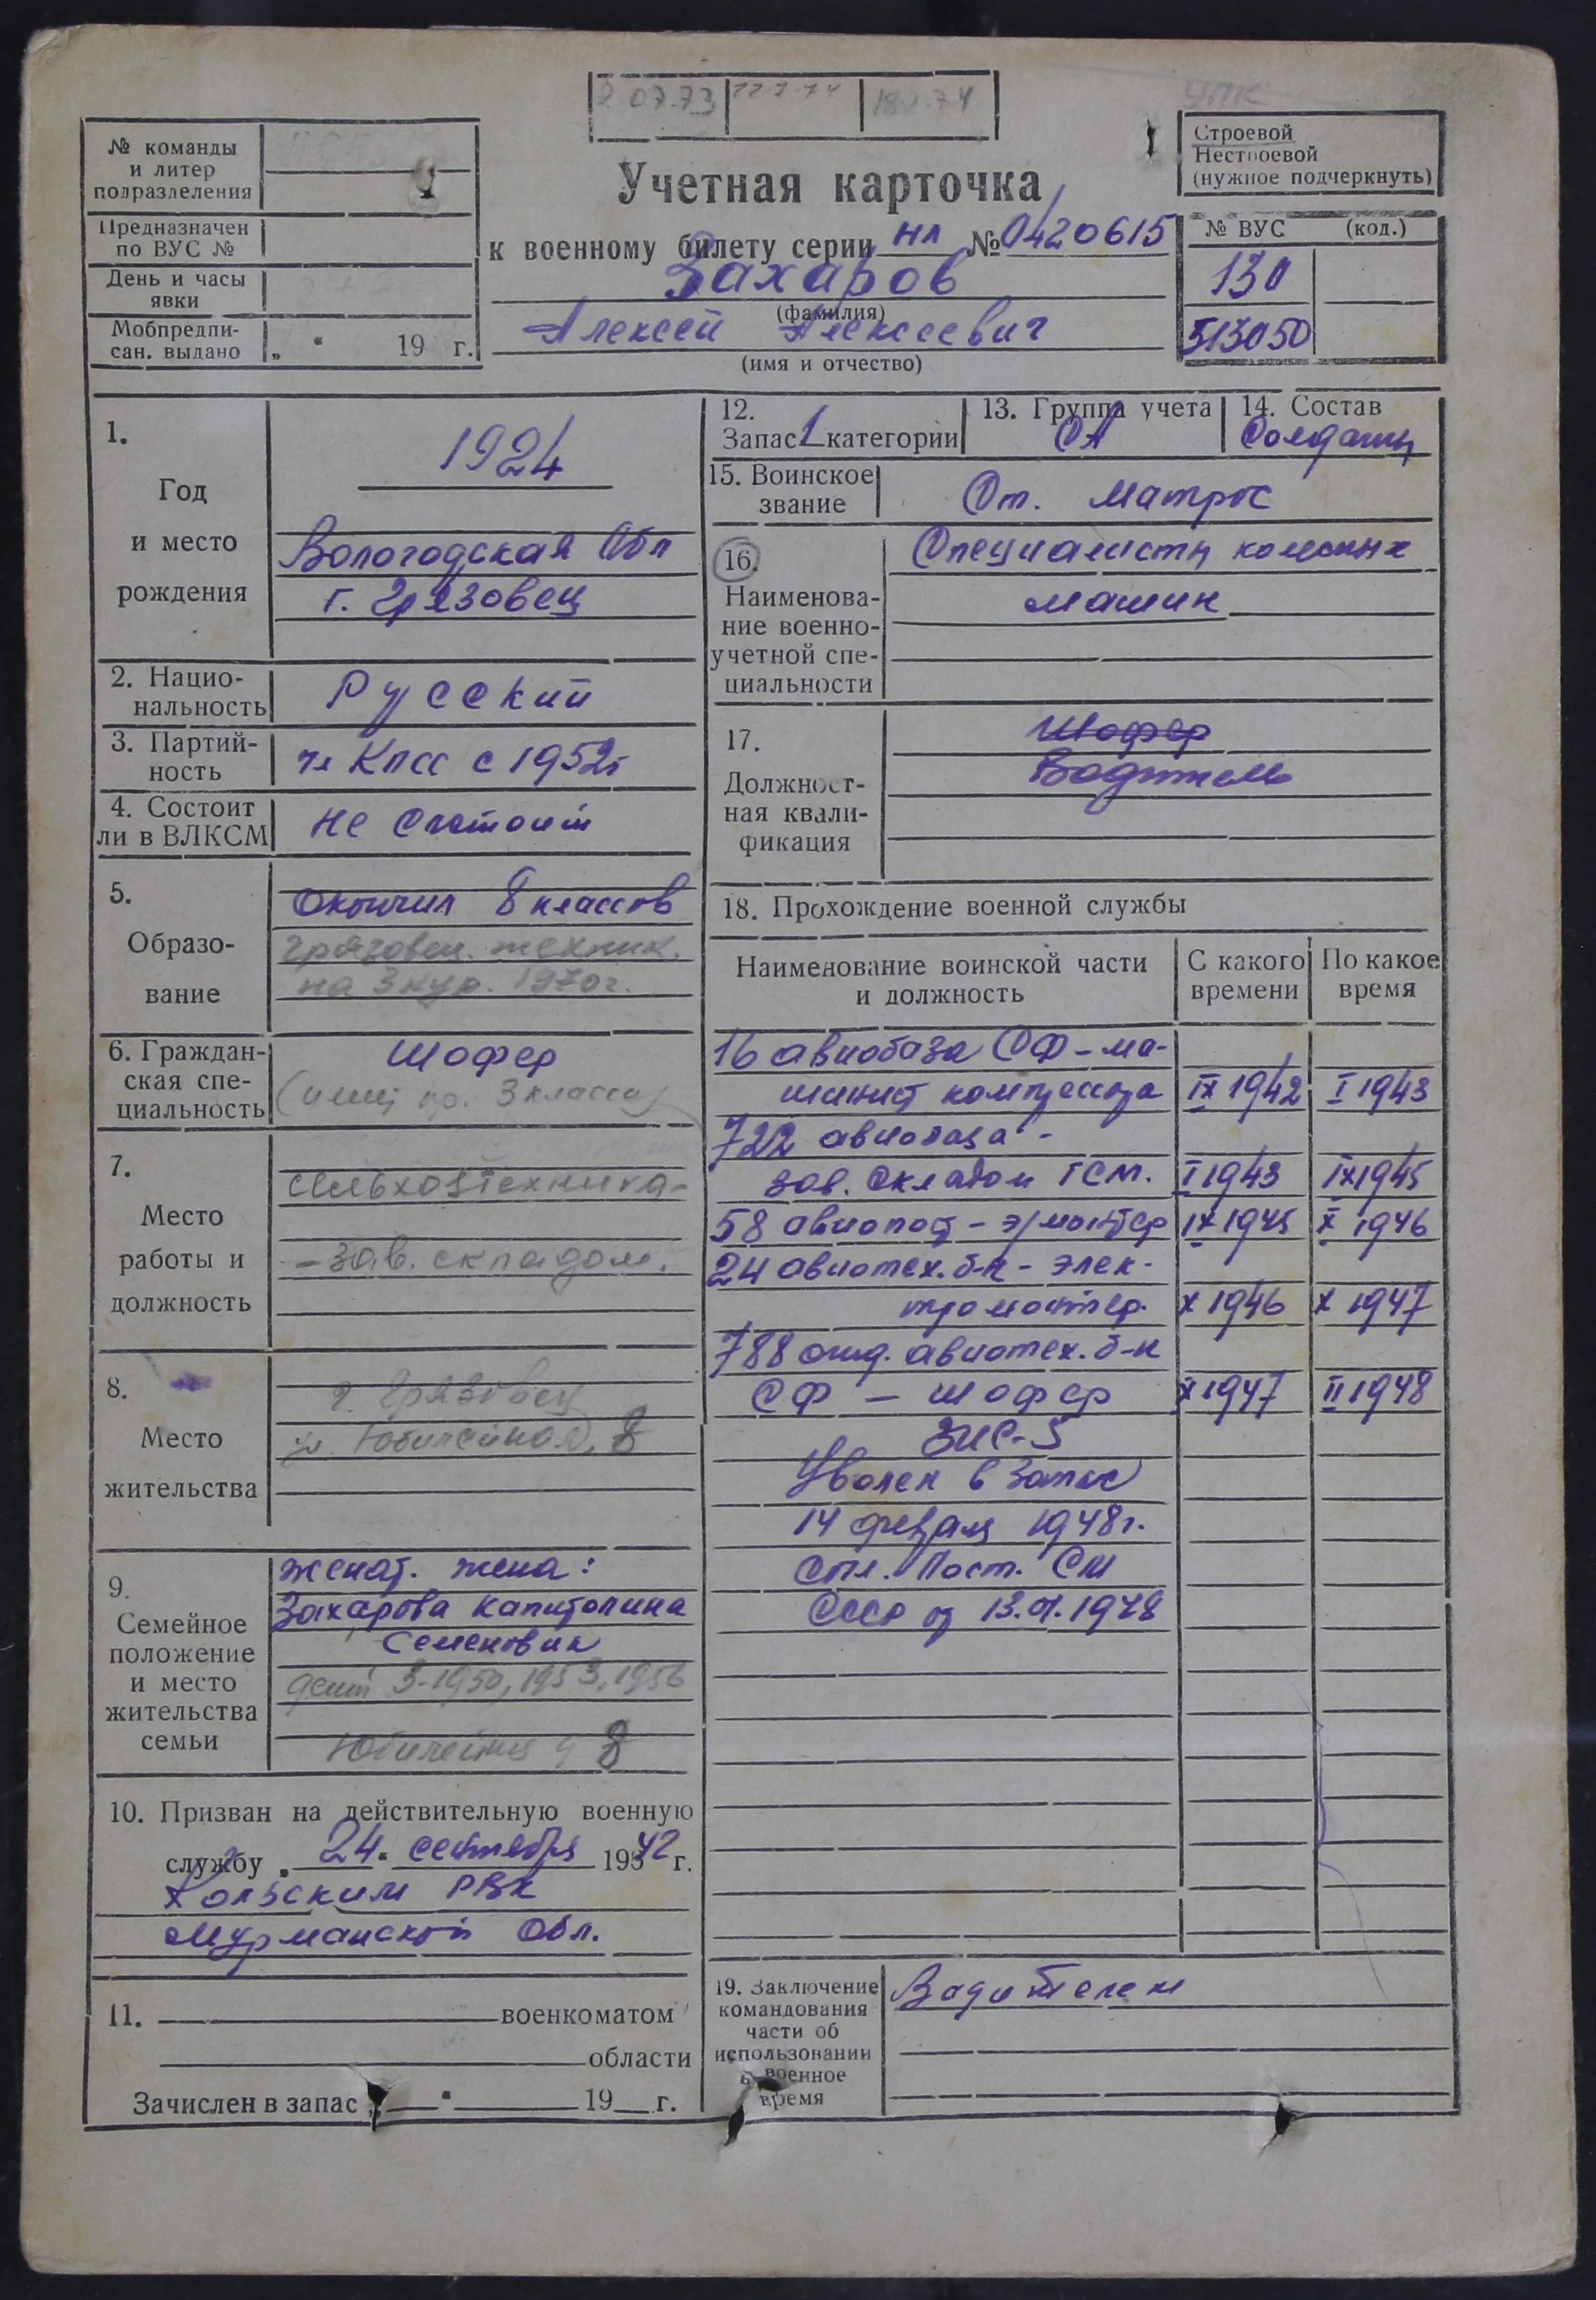 07.73 22.7.74
№ команды
и литер
подразделения
Предназначен
по ВУС №
День и часы
явки
Мобпредпи-
сан. выдано „ “ 19 г.
Учетная карточка
к военному билету серии НЛ № 0420615
Захаров
(фамилия)
Алексей Алексеевич
(имя и отчество)
УПК
Строевой
Нестроевой
(нужное подчеркнуть)
№ ВУС (код.)
130
513050
1.
Год
и место
рождения
1924
Вологодская Обл
г. Грязовец
2. Нацио-
нальность
Русский
3. Партий-
ность
чл КПСС с 1952г
4. Состоит
ли в ВЛКСМ
Не состоит
5.
Образо-
вание
Окончил 8 классов
Грязовец. техник.
на 3 кур. 1970г.
6. Граждан-
ская спе-
циальность
Шофер
3 класса)
7.
Место
работы и
должность
сельхозтехника-
- зав. складом.
8.
Место
жительства
г. Грязовец
ул. Юбилейная, 8
9.
Семейное
положение
и место
жительства
семьи
женат. жена:
Захарова Капитолина
Семеновна
дети 3-1950, 1953, 1956
Юбилейная 8
10. Призван на действительную военную
службу „ 24 “ сентября 1942 г.
Кольским РВК
Мурманской Обл.
11. военкоматом
области
Зачислен в запас „ “ 19 г.
12.
Запас 1 категории
13. Группа учета
СА
14. Состав
Солдаты
15. Воинское
звание
Ст. матрос
16.
Наименова-
ние военно-
учетной спе-
циальности
Специалисты колесных
машин
17.
Должност-
ная квали-
фикация
Шофер
Водитель
18. Прохождение военной службы
Наименование воинской части
и должность
С какого
времени
По какое
время
16 авиобаза СФ - ма-
шинист компрессора IX 1942 I 1943
722 авиобаза -
зав. складом ГСМ. I 1943 IX 1945
58 авиопост - э/монтер IX 1945 X 1946
24 авиотех. б-н - элек-
тромонтер. X 1946 X 1947
788 отд. авиотех. б-н
СФ - шофер X 1947 II 1948
ЗИС-5
Уволен в запас
14 февраля 1948г.
Пост. СМ
СССР от 1948
19. Заключение
командования
части об
использовании
в военное
время
Водителем